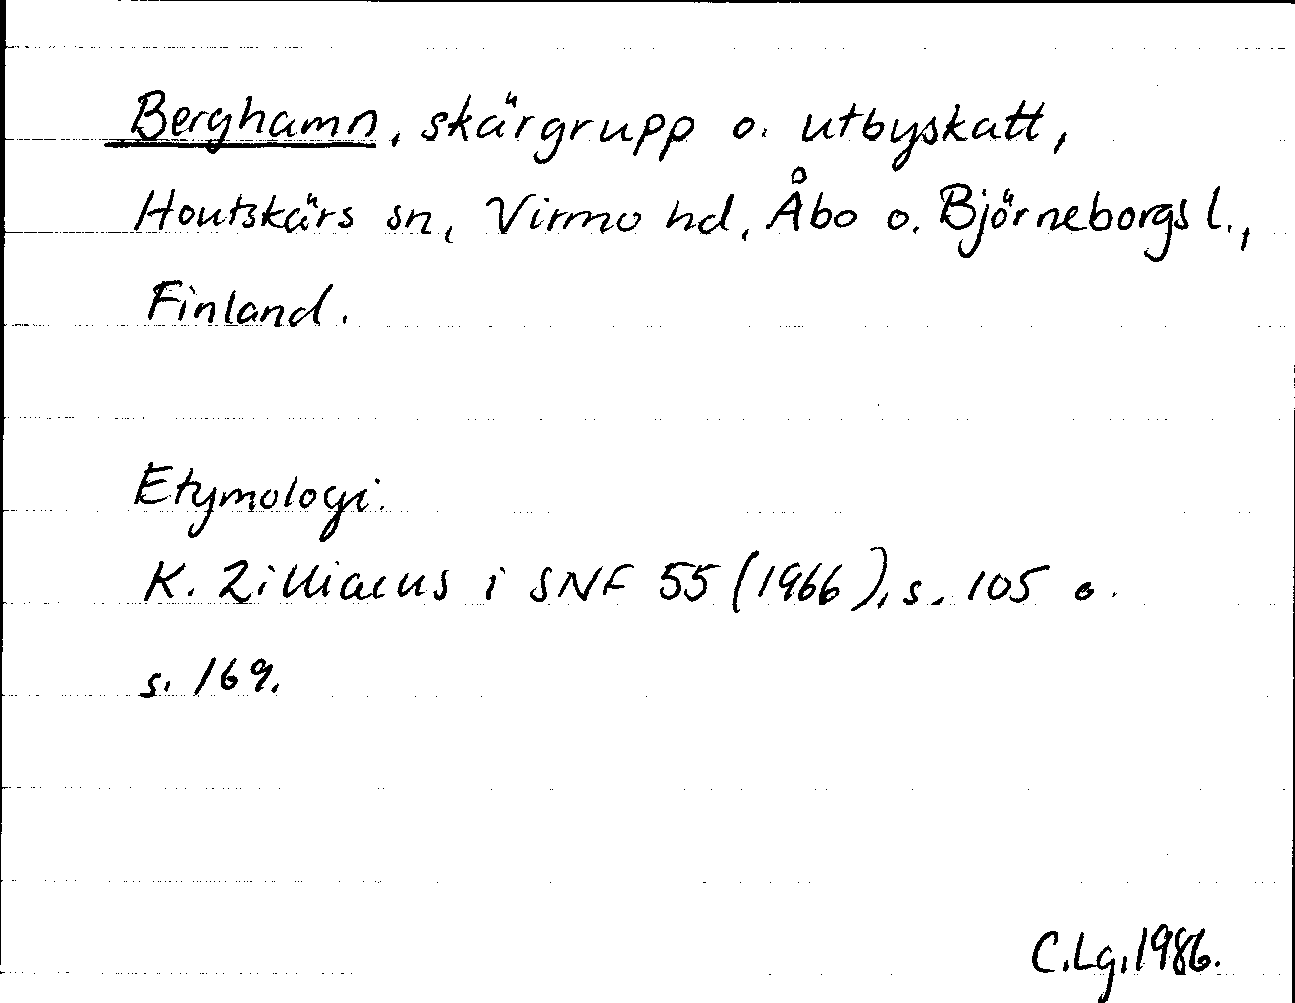 Berghamn, skärgrupp o. utbyskatt,
Houtskärs sn, Virmo hd, Åbo o. Björneborgs l.,
Finland.
Etymologi.
K. Zilliacus i SNF 55 (1966), s. 105 o.
s. 169.
C.Lg.1986.